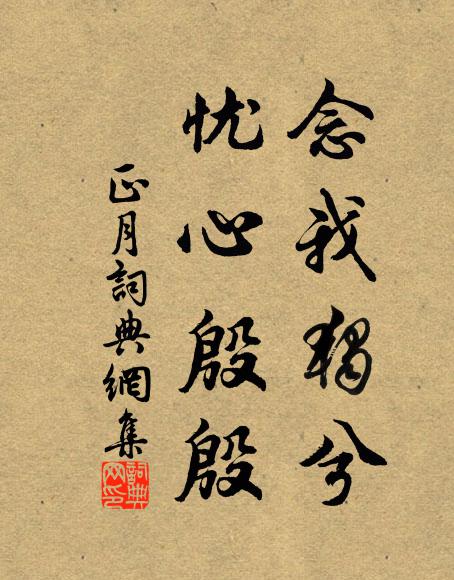 念我獨兮
忧心殷殷
正月詞典網集
詞典
网印